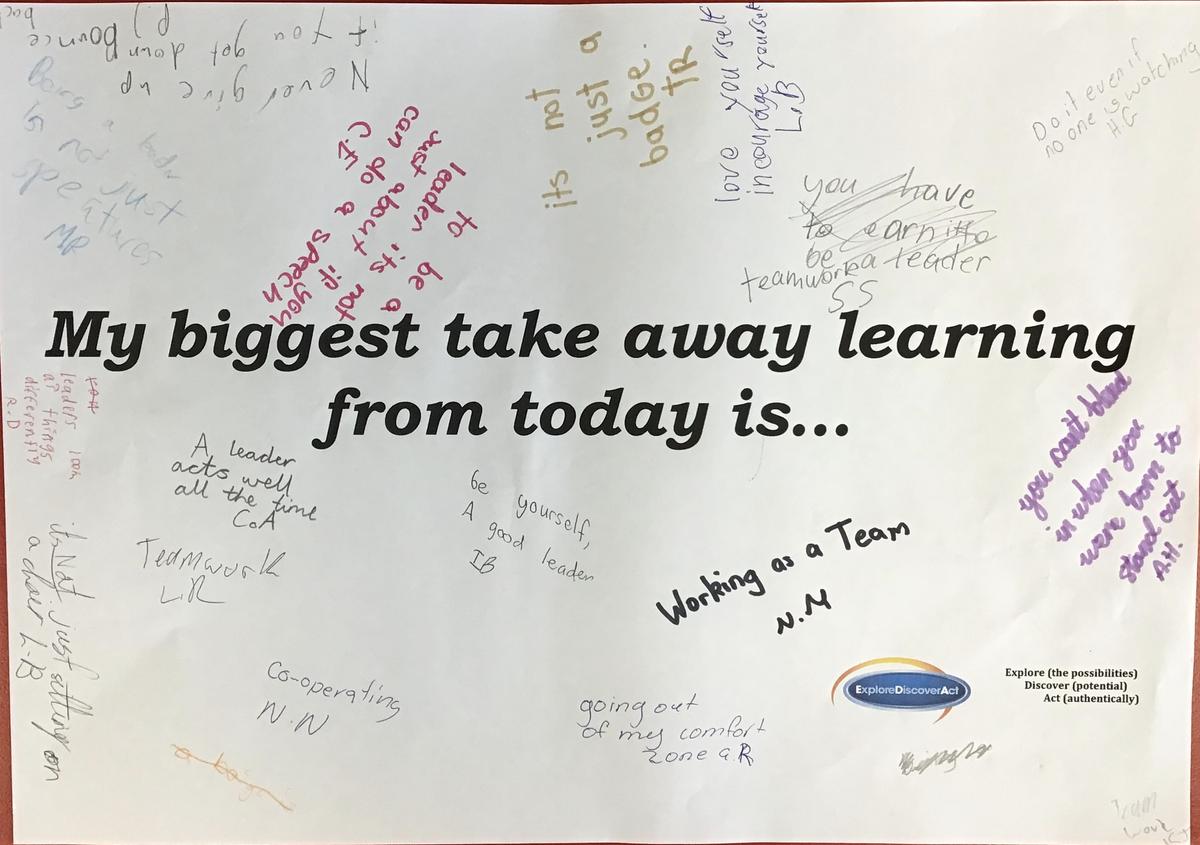 Never give up
if you got down bounce
back
its not
just a
badge.
TR
love yourself
incourage yourself
L.B
Do it even if
no one is watching
H.G
Being a
is not just
MR
to be a
leader its not
just about if you
can do a speech
C.E
you have
to earn it to
be a leader
teamwork
SS
My biggest take away learning
from today is...
leaders look
at things
differently
R.D
A leader
acts well
all the time
C.A
be yourself,
A good leader
IB
you can't blend
in when you
were born to
stand out
A.H.
Teamwork
L.R
Working as a Team
N.M
its Not just sitting on
a chair L.B
Co-operating
N.N
going out
of my comfort
zone a.R
ExploreDiscoverAct
Explore (the possibilities)
Discover (potential)
Act (authentically)
Team
work